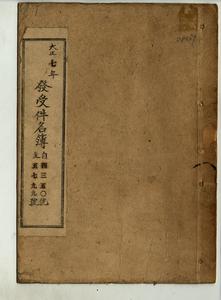 大正七年
發受件名簿
自四三五〇號
至五七九九號